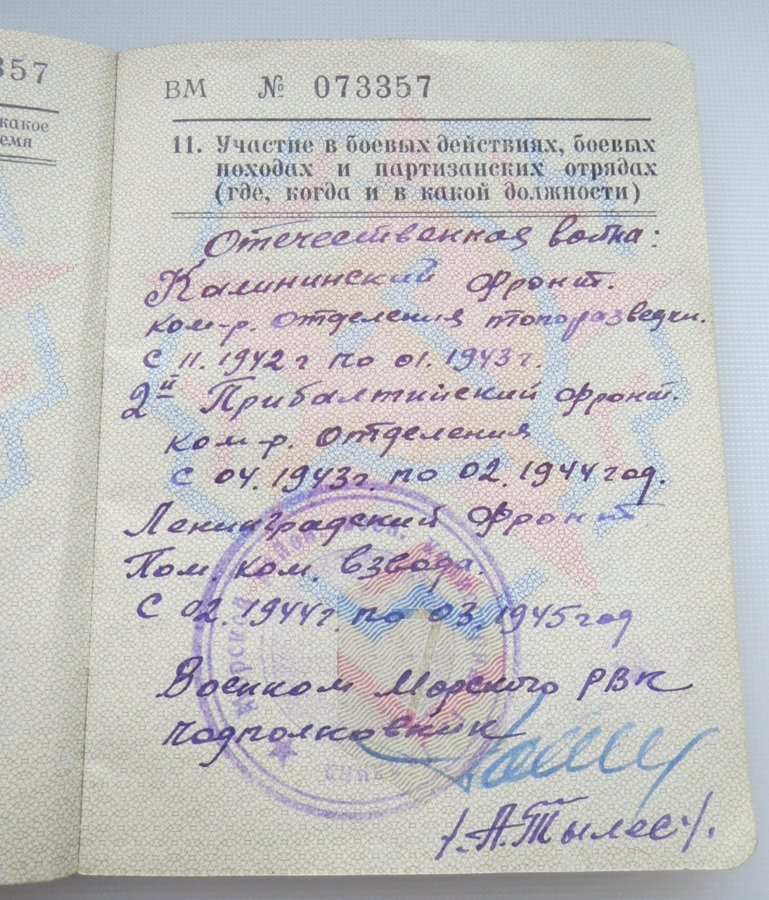 357
какое
ВМ № 073357
11. Участие в боевых действиях, боевых
походах и партизанских отрядах
(где, когда и в какой должности)
Отечественная война:
Калининский фронт.
ком-р. отделения топоразведки.
с 11.1942 г по 01.1943 г.
2й Прибалтийский фронт.
ком-р. отделения
с 04.1943 г. по 02.1944 год.
Ленинградский фронт.
Пом. ком. взвода.
с 02.1944 г. по 03.1945 год
Военком Морского РВК
подполковник
/А.Тылес/.